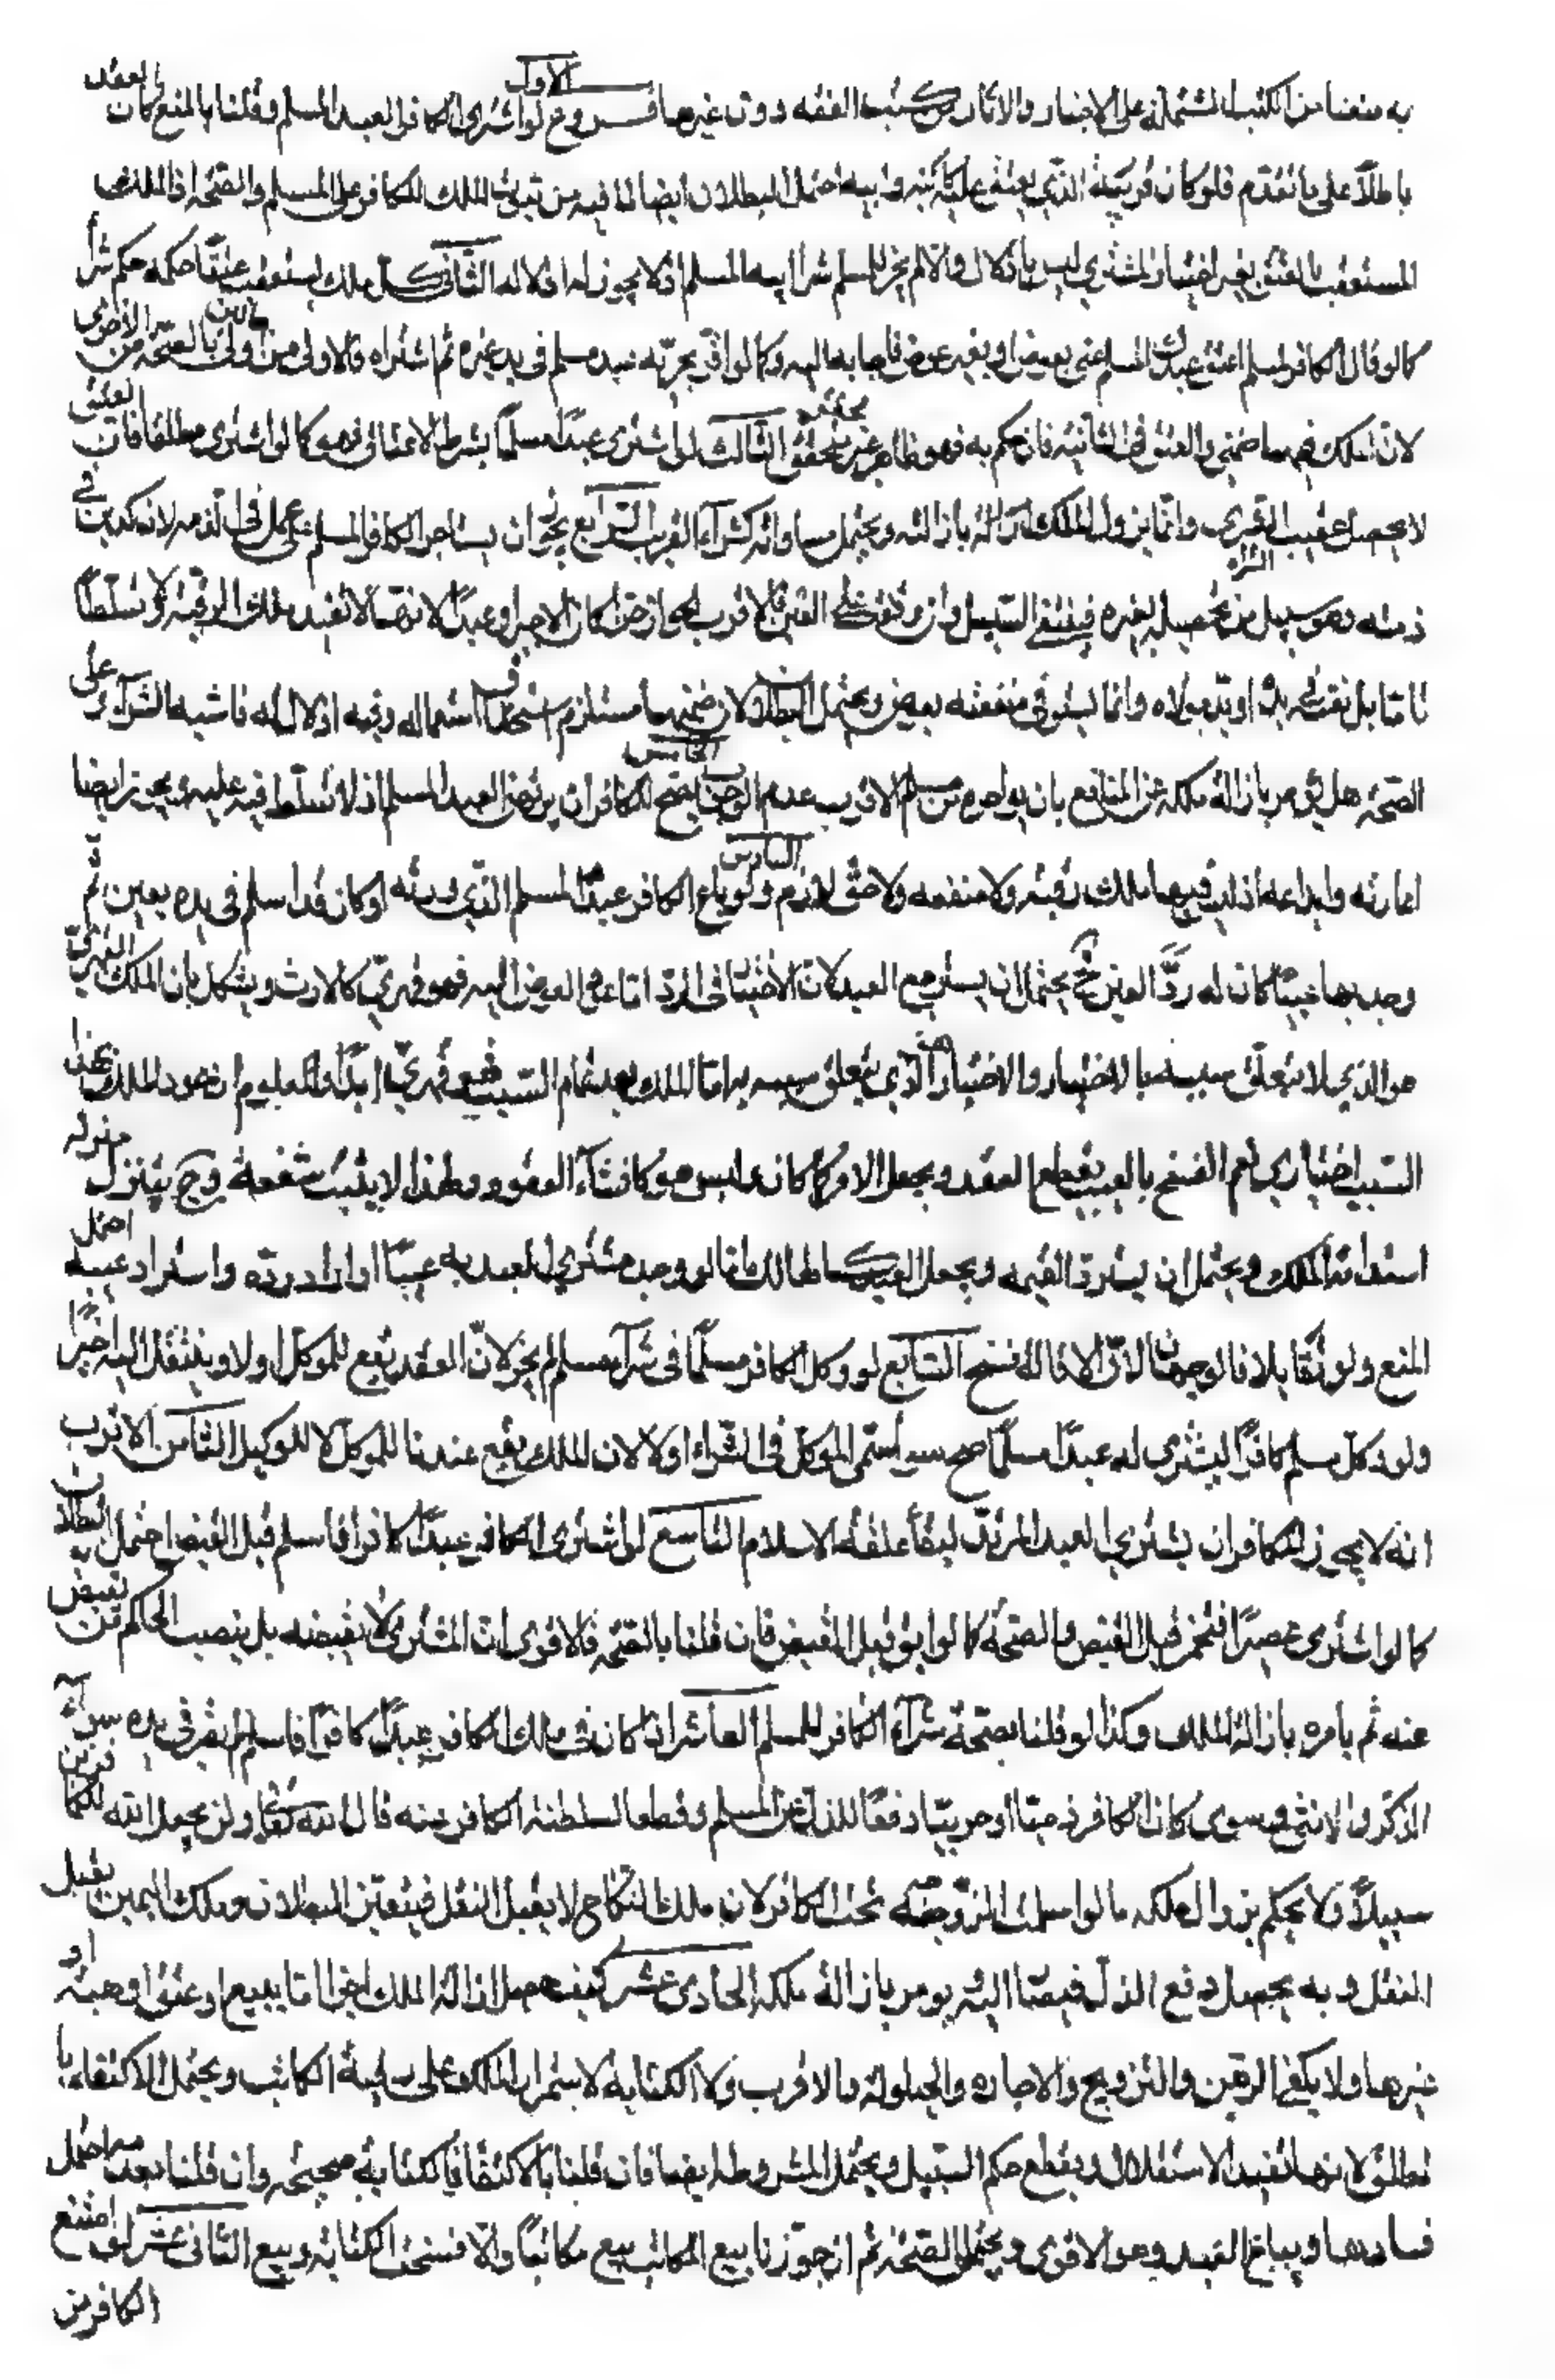 به منعنا من الكتب المشتملة على الاخبار والاثار من كتب الفقه دون غيرها فروع الاول لو اشترى الكافر العبد المسلم وقلنا بالمنع كان العقد
باطلا على ما تقدم فلو كان قريبه الذي يعتق عليه كابنه وابيه احتمل البطلان ايضا لما فيه من ثبوت الملك للكافر على المسلم والصحة فالملك
المستعقب بالعتق بغير اختيار المشتري ليس باذلال والا لم يجز للمسلم شراء ابيه المسلم اذ لا يجوز له اذلاله الثاني كل ملك يستعقب عتقا حكمه حكم شراء القريب
كما لو قال الكافر لمسلم اعتق عبدك المسلم عني بعوض او بغير عوض فاجابه اليه وكما لو اقر بحرية عبد مسلم في يد غيره ثم اشتراه فالاولى من اولى بالصحة من الاخرى
لان الملك فيهما ضمني والعتق في الثانية فان حكم به فهو ظاهر غير محقق الثالث لو اشترى عبدا مسلما بشرط الاعتاق فهو كما لو اشترى مطلقا فان العتق
لا يحصل عقيب الشرى وانما يزول الملك بازالته ويحتمل مساواته كشراء القريب الرابع يجوز ان يستاجر الكافر المسلم على عمل في الذمة لانه كدين في
ذمته وهو سبيل من تحصيله بغيره فينتفي السبيل وان وقعت على العين فالاقرب الجواز حرا كان الاجير او عبدا لانها لا تفيد ملك الرقبة ولا تسلطا
تاما بل نفسه في يده او يد مولاه وانما يستوفي منفعته بعوض ويحتمل البطلان لان ضمنها مستلزم استحقاق استعماله وفيه اذلال له فاشبه الشراء وعلى
الصحة هل يؤمر بازالة ملكه عن المنافع بان يواجره من مسلم الاقرب عدم الوجوب الخامس يصح للكافر ان يرتهن العبد المسلم اذ لا تسلط فيه عليه ويجوز ايضا
اعارته وايداعه اذ ليس فيهما ملك رقبته ولا منفعه ولا حق لازم السادس ولو باع الكافر عبدا المسلم الذي ورثه او كان قد اسلم في يده بعين ثم
وجد بها عيبا كان له رد العين وح يحتمل ان يسترجع العبد لان الاختيار في الرد اما عود العوض اليه فهو قهري كالارث ويشكل بان الملك القهري
هو الذي لا يتعلق سببه بالاختيار والاختيار هنا الذي يتعلق بسببه اما الملك بعد تمام السبب فهو قهري ابدا والمعلوم ان عود الملك بهذا
السبب اختياري نعم الفسخ بالعيب يقطع العقد ويجعل الامر كما كان وليس هو كانشاء العقود ولهذا لا يثبت به شفعة وح يتنزل منزلة
استدامة الملك ويحتمل ان يسترد القيمة ويجعل العبد كالهالك واما لو وجد مشتري العبد به عيبا واراد رده واسترداد عينه احتمل
المنع ولو تقايلا فالوجهان لان الاقالة فسخ السابع لو وكل الكافر مسلما في شراء مسلم لم يجز لان العقد يقع للموكل اولا وينتقل اليه اخيرا
ولو وكل مسلم كافرا ليشتري له عبدا مسلما صح سواء سمى الموكل في الشراء او لا لان الملك يقع عندنا للموكل لا للوكيل الثامن الاقرب
انه لا يجوز للكافر ان يشتري العبد المرتد لبقاء علقة الاسلام التاسع لو اشترى الكافر عبدا كافرا فاسلم قبل القبض احتمل البطلان
كما لو اشترى عصيرا فتخمر قبل القبض والصحة كما لو ابق قبل القبض فان قلنا بالصحة فالاقوى ان المشتري لا يقبضه بل ينصب الحاكم من يقبض
عنه ثم يامره بازالة الملك وكذا لو قلنا بصحة شراء الكافر للمسلم العاشر اذا كان في ملك الكافر عبدا كافرا فاسلم لم يقر في يده سواء
الذكر والانثى وسوى كان الكافر ذميا او حربيا دفعا للذل عن المسلم وقطعا لسلطنة الكافر عنه قال الله تعالى ولن يجعل الله للكافرين
سبيلا ولا يحكم بزوال ملكه ما لو اسلمت الزوجة تحت الكافر لان ملك النكاح لا يقبل النقل فيتعين البطلان وملك اليمين يقبل
النقل وبه يحصل دفع الذل فيصار اليه يومر بازالة ملكه الحادي عشر كيف حصل ازالة الملك اجزا اما ببيع او عتق او هبة او
غيرها ولا يكفي الرهن والتزويج والاجارة والحيلولة والاقرب ولا الكتابة لاستمرار الملك على رقبة الكاتب ويحتمل الاكتفاء بال
مطلق لانها تفيد الاستقلال ويقطع حكم السبيل ويحتمل المشروطة ايضا فان قلنا بالاكتفاء فالكتابة صحيحة وان قلنا بعدمه احتمل
فسادها ويباع العبد وهو الاقوى ويحتمل الصحة ثم ان جوزنا بيع المكاتب بيع مكاتبا والا فسخت الكتابة وبيع الثاني عشر لو امتنع
الكافر من